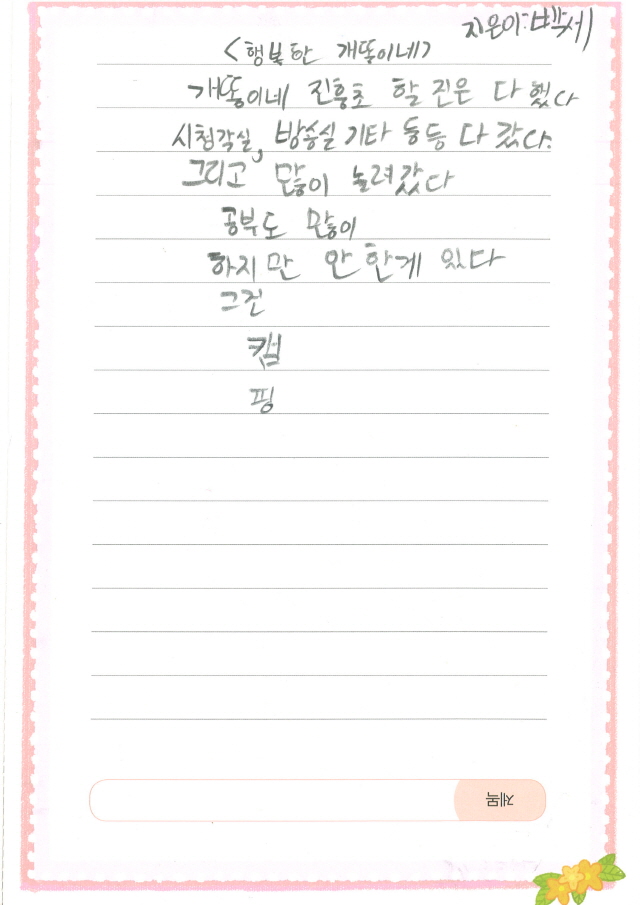 지은이:백세
<행복한 개똥이네>
개똥이네 진흥초 할 진은 다 했다
시청각실, 방송실 기타 등등 다 갔다.
그리고 많이 놀려갔다
공부도 많이
하지만 안 한게 있다
그건
캠
핑
제목